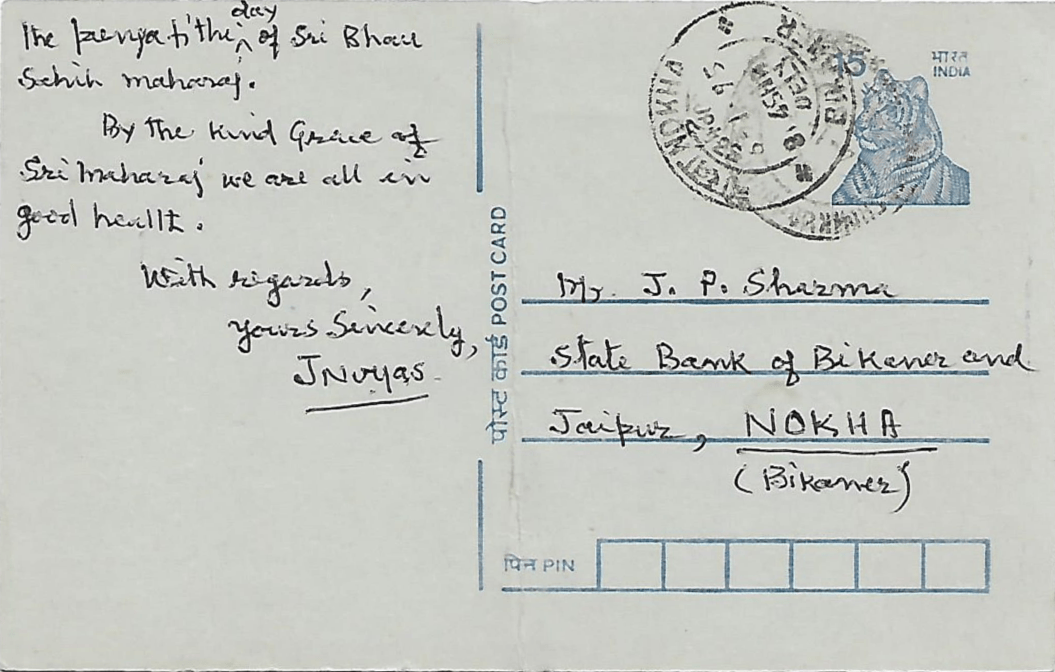 the punya tithi day of Sri Bhau
Sahib maharaj.
By the kind Grace of
Sri Maharaj we are all in
good health.
With regards,
Yours Sincerely,
JNVyas
पोस्ट कार्ड POST CARD
15
भारत
INDIA
NOKHA
Mr. J. P. Sharma
State Bank of Bikaner and
Jaipur, NOKHA
(Bikaner)
पिन PIN